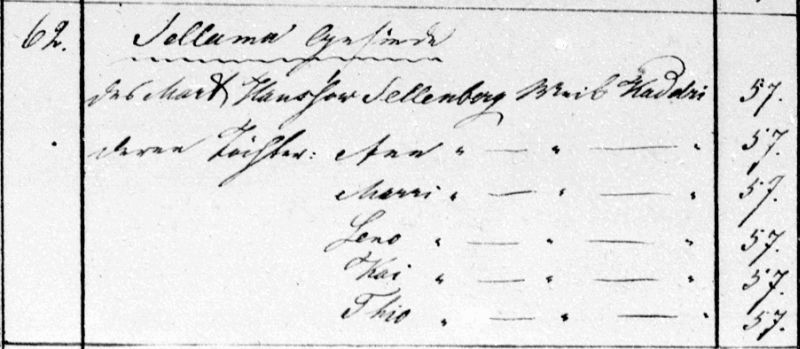 62. Sellama Gesinde
des Mart Hansson Sellenberg Weib Kaddri 57.
deren Töchter: Ann " — " — " 57.
Marri " — " — " 57.
Leno " — " — " 57.
Kai " — " — " 57.
Thio " — " — " 57.